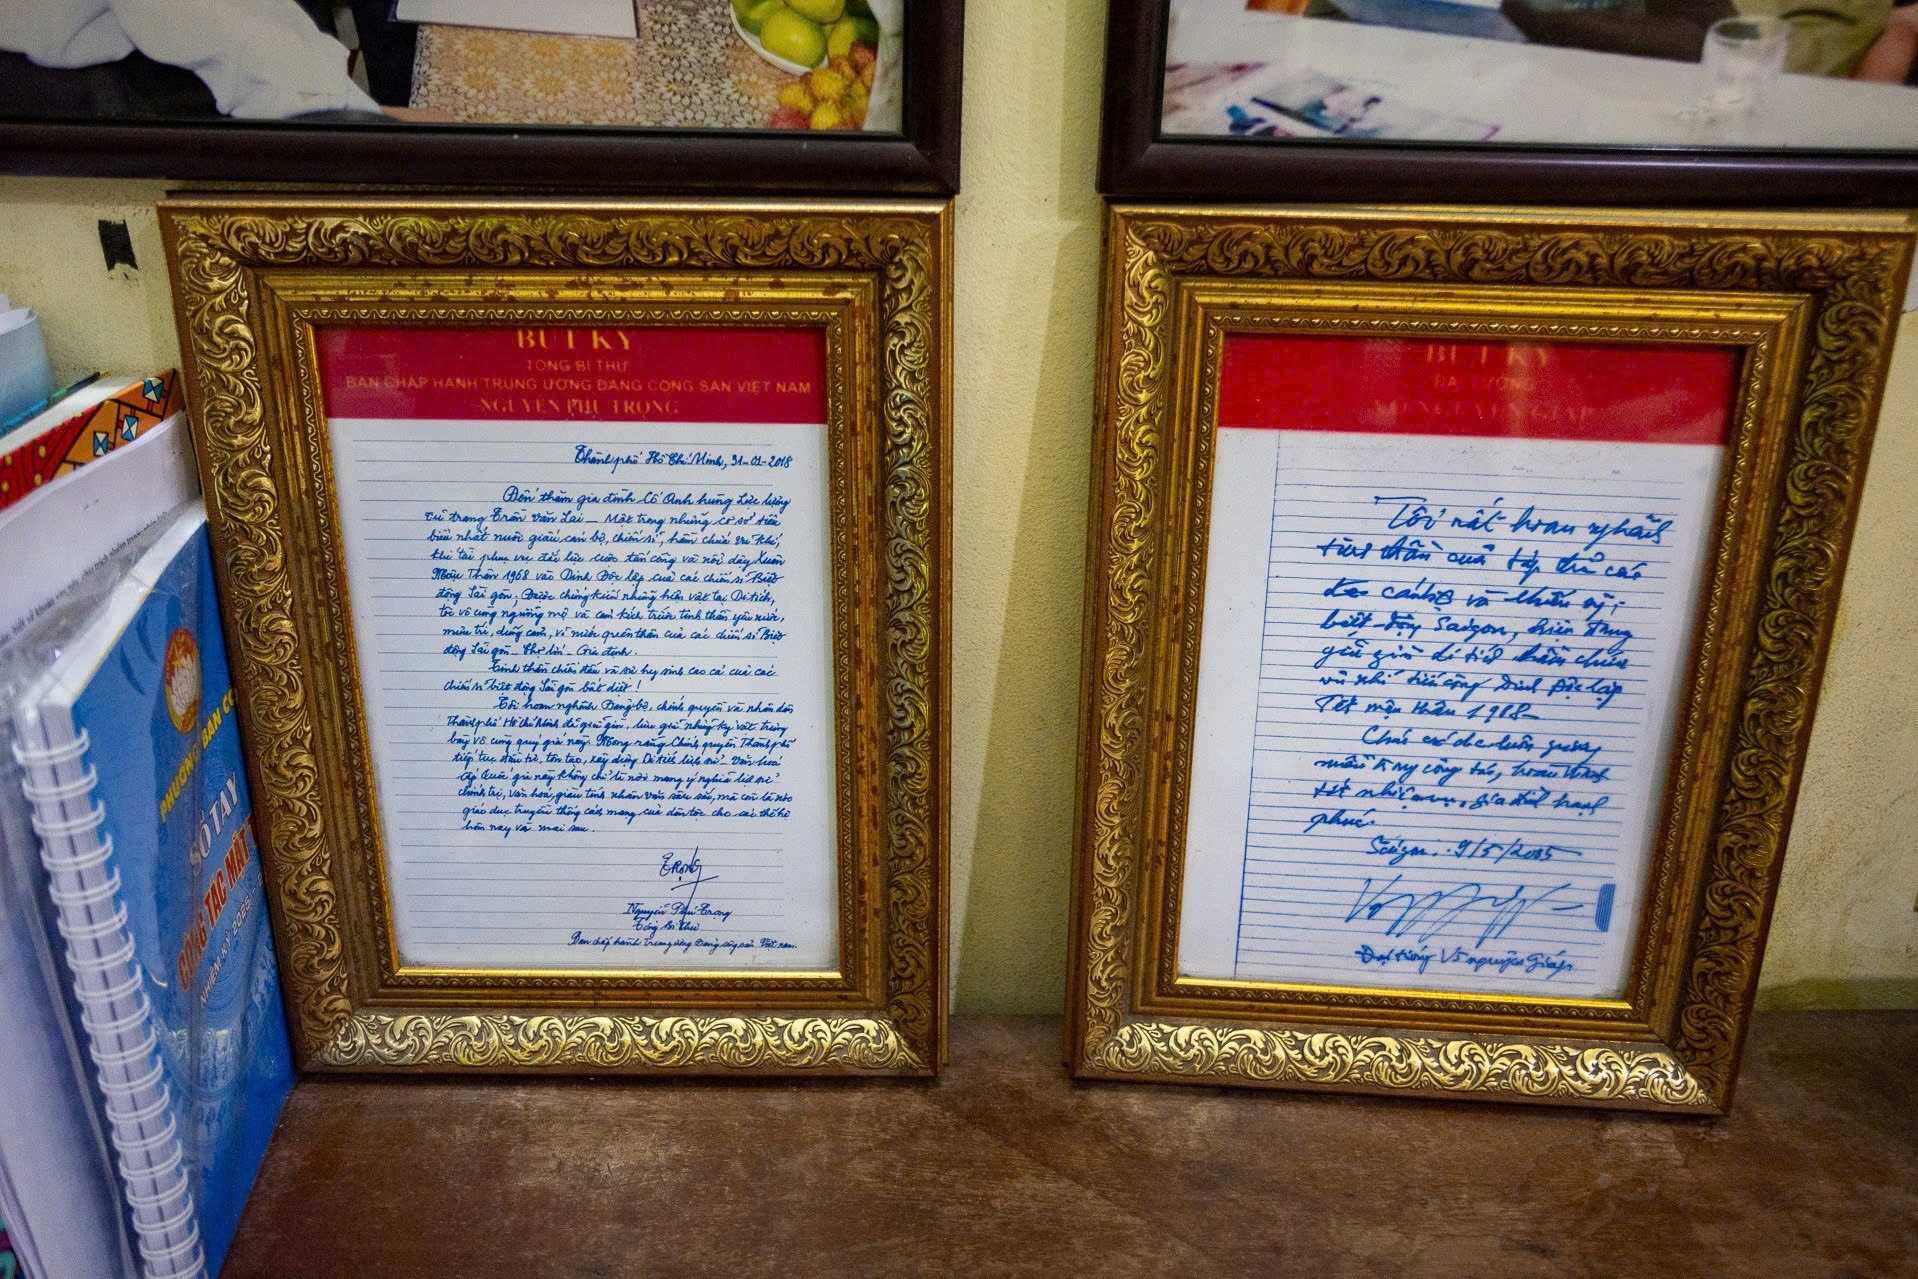 BÚT KÝ
TỔNG BÍ THƯ
BAN CHẤP HÀNH TRUNG ƯƠNG ĐẢNG CỘNG SẢN VIỆT NAM
NGUYỄN PHÚ TRỌNG
Thành phố Hồ Chí Minh, 31-01-2018
Đến thăm gia đình Cố Anh hùng Lực lượng
vũ trang Trần Văn Lai – Một trong những cơ sở tiêu
biểu nhất nuôi giấu cán bộ, chiến sĩ, hầm chứa vũ khí,
khí tài phục vụ đắc lực cuộc tấn công và nổi dậy Xuân
Mậu Thân 1968 vào Dinh Độc lập của các chiến sĩ Biệt
động Sài gòn; Được chứng kiến những hiện vật tại Di tích,
tôi vô cùng ngưỡng mộ và cảm kích trước tinh thần yêu nước,
mưu trí, dũng cảm, vì nước quên thân của các chiến sĩ Biệt
động Sài gòn - Chợ lớn - Gia định.
Tinh thần chiến đấu và sự hy sinh cao cả của các
chiến sĩ biệt động Sài gòn bất diệt!
Tôi hoan nghênh Đảng bộ, chính quyền và nhân dân
Thành phố Hồ Chí Minh đã giữ gìn, lưu giữ những kỷ vật trưng
bày vô cùng quý giá này. Mong rằng Chính quyền Thành phố
tiếp tục đầu tư, tôn tạo, xây dựng Di tích lịch sử - Văn hoá
cấp Quốc gia này không chỉ là nơi mang ý nghĩa lịch sử
chính trị, văn hoá, giàu tính nhân văn sâu sắc, mà còn là nơi
giáo dục truyền thống cách mạng của dân tộc cho các thế hệ
hôm nay và mai sau.
Trọng
Nguyễn Phú Trọng
Tổng Bí Thư
Ban chấp hành trung ương Đảng cộng sản Việt nam.
BÚT KÝ
ĐẠI TƯỚNG
VÕ NGUYÊN GIÁP
Tôi rất hoan nghênh
tinh thần của tập thể các
đ/c cán bộ và chiến sĩ
biệt động Saigon, hiện đang
giữ gìn di tích hầm chứa
vũ khí tiến công Dinh Độc lập
Tết mậu thân 1968-
Chúc các đ/c luôn
công tác, hoàn thành
tốt nhiệm vụ, gia đình hạnh
phúc.
Sàigon, 9/5/2005
Đại tướng Võ nguyên Giáp
PHƯƠNG BAN CÔ
SỔ TAY
CÔNG TÁC MẶT T
NHIỆM KỲ 2025